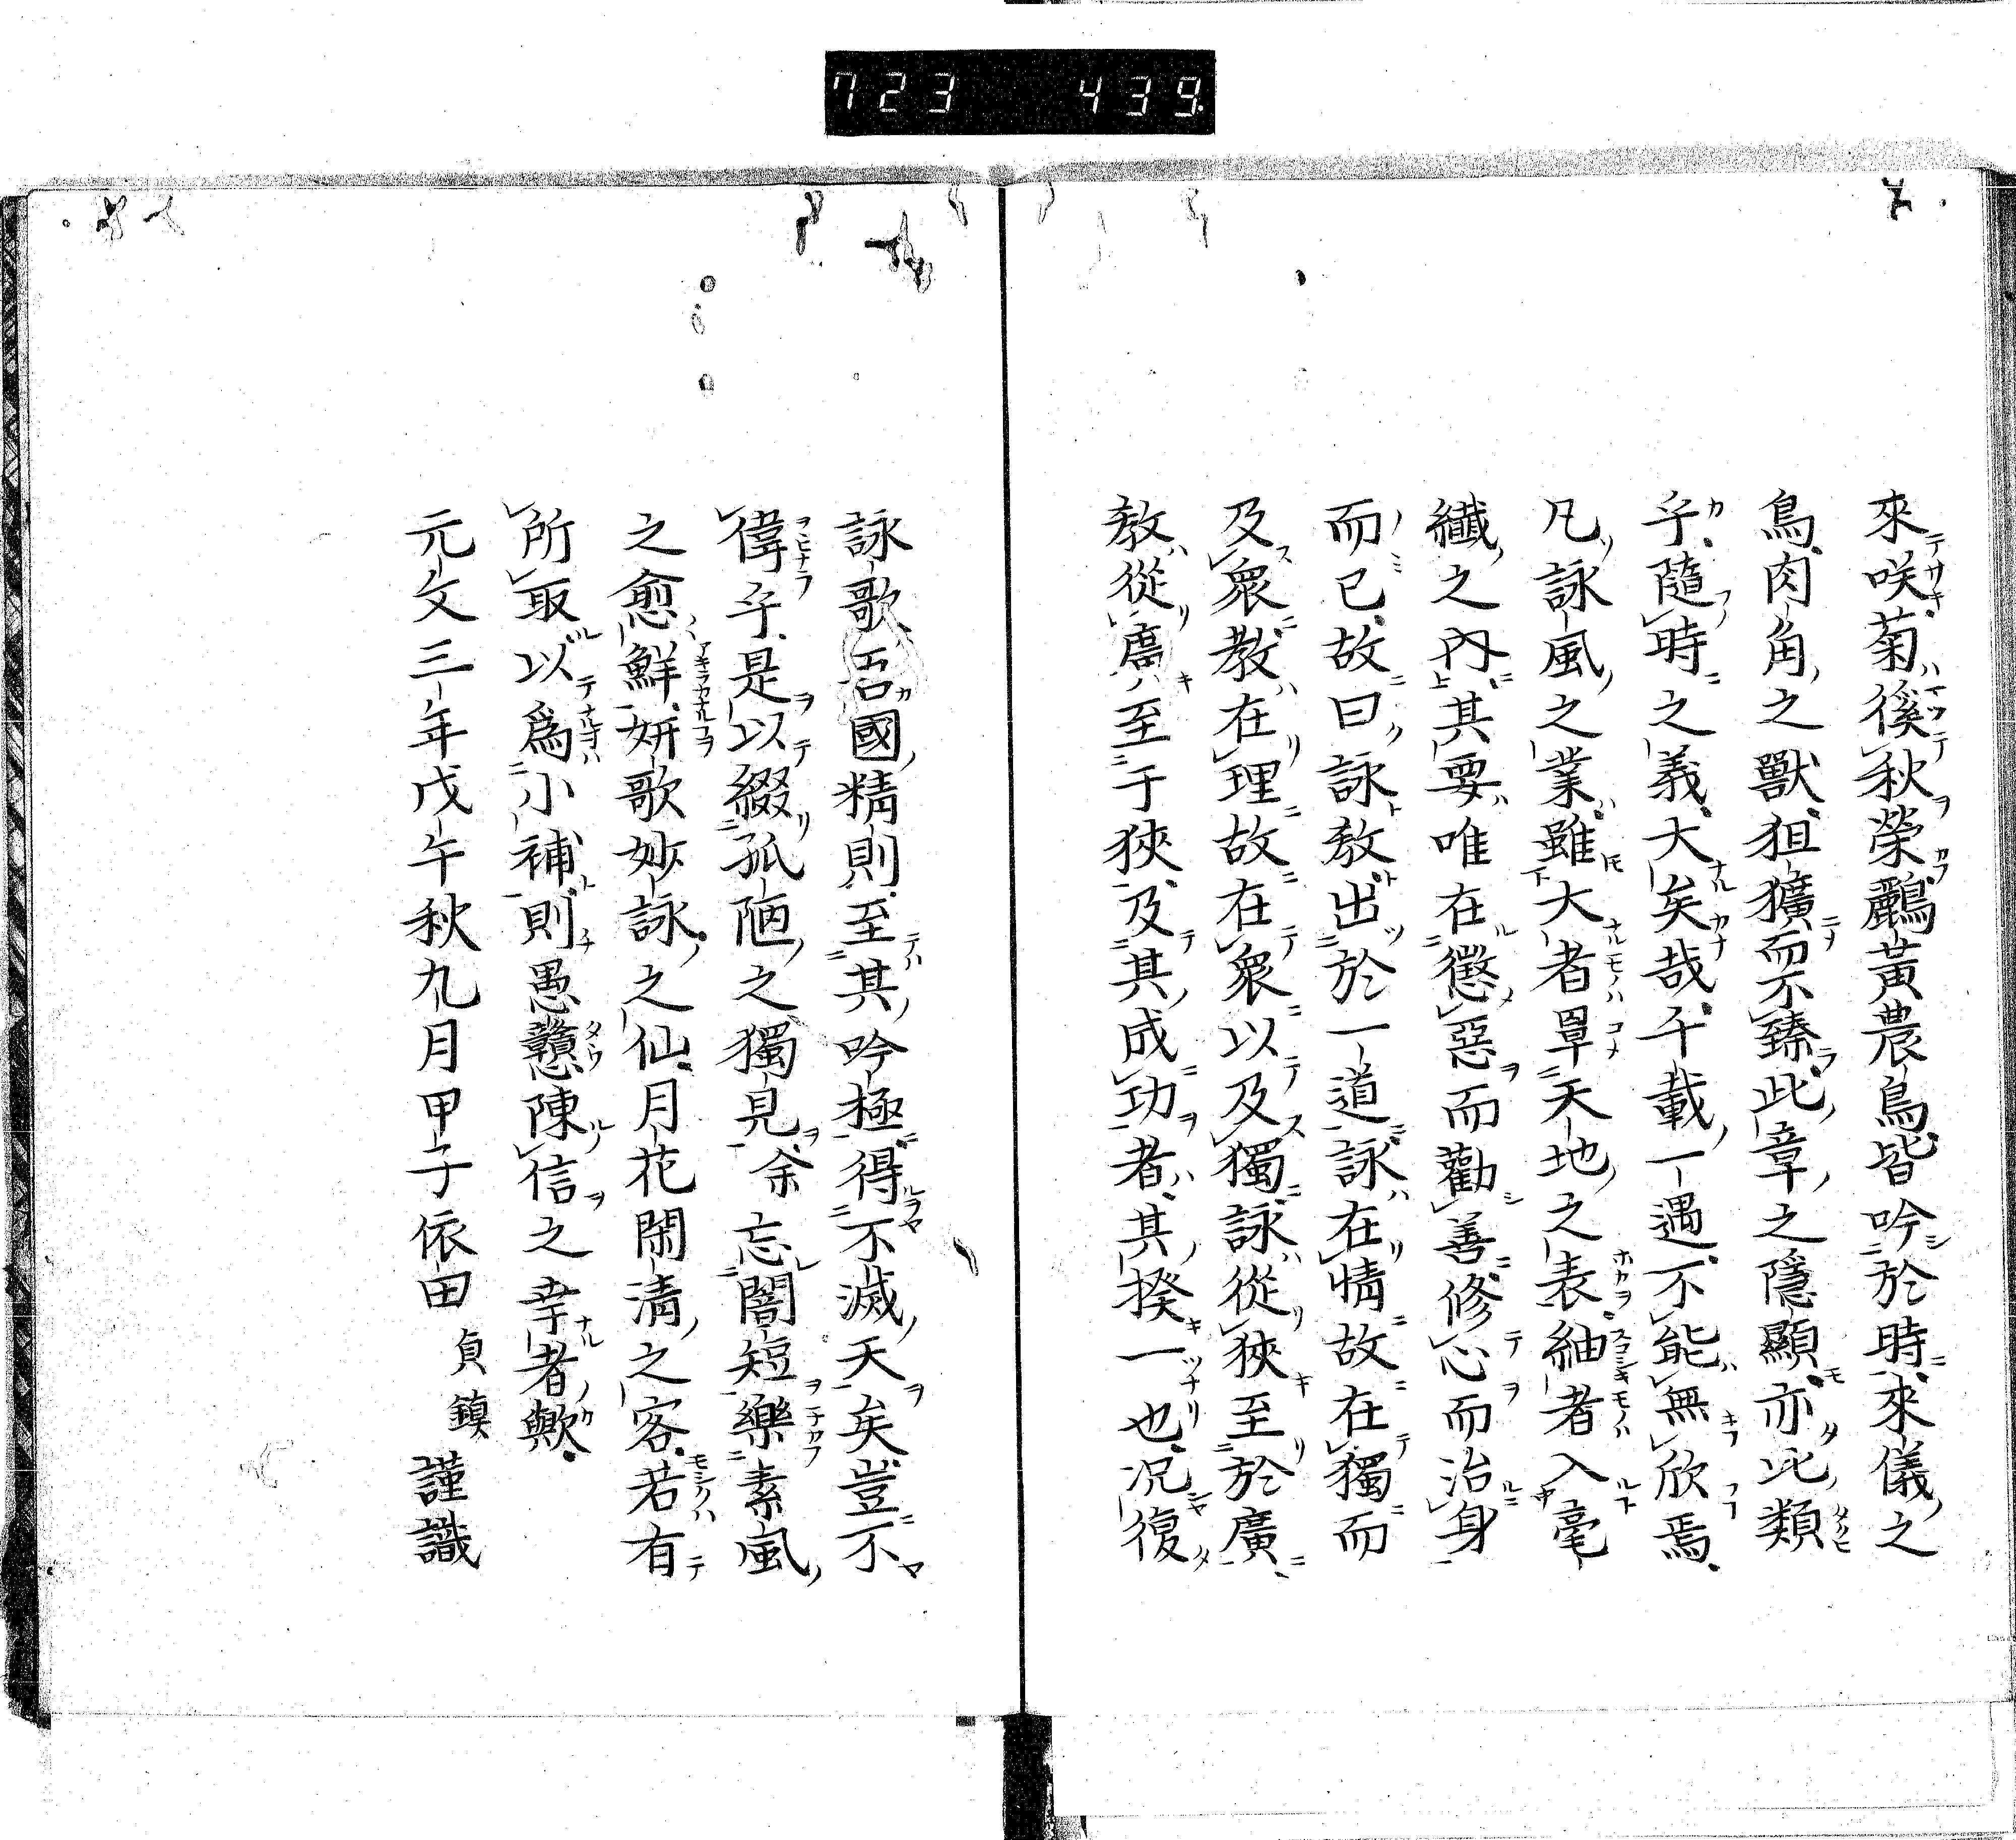 723 439
來咲菊徯秋榮鸝黃農鳥皆吟於時來儀之
鳥肉角之獸狙獷而不臻此章之隱顯亦比類
乎隨時之義大矣哉千載一遇不能無欣焉
凡詠風之業雖大者罩天地之表紬者入毫
纖之內其要唯在懲惡而勸善修心而治身
而已故曰詠教出於一道詠在情故在獨而
及衆教在理故在衆以及獨詠從狹至於廣
教從廣至于狹及其成功者其揆一也况復
詠歌吾國精則至其吟極得不滅天矣豈不
偉乎是以綴孤陋之獨見余忘闇短樂素風
之愈鮮妍歌妙詠之仙月花閑清之客若有
所取以爲小補則愚戇陳信之幸者歟
元文三年戊午秋九月甲子依田貞鎮謹識